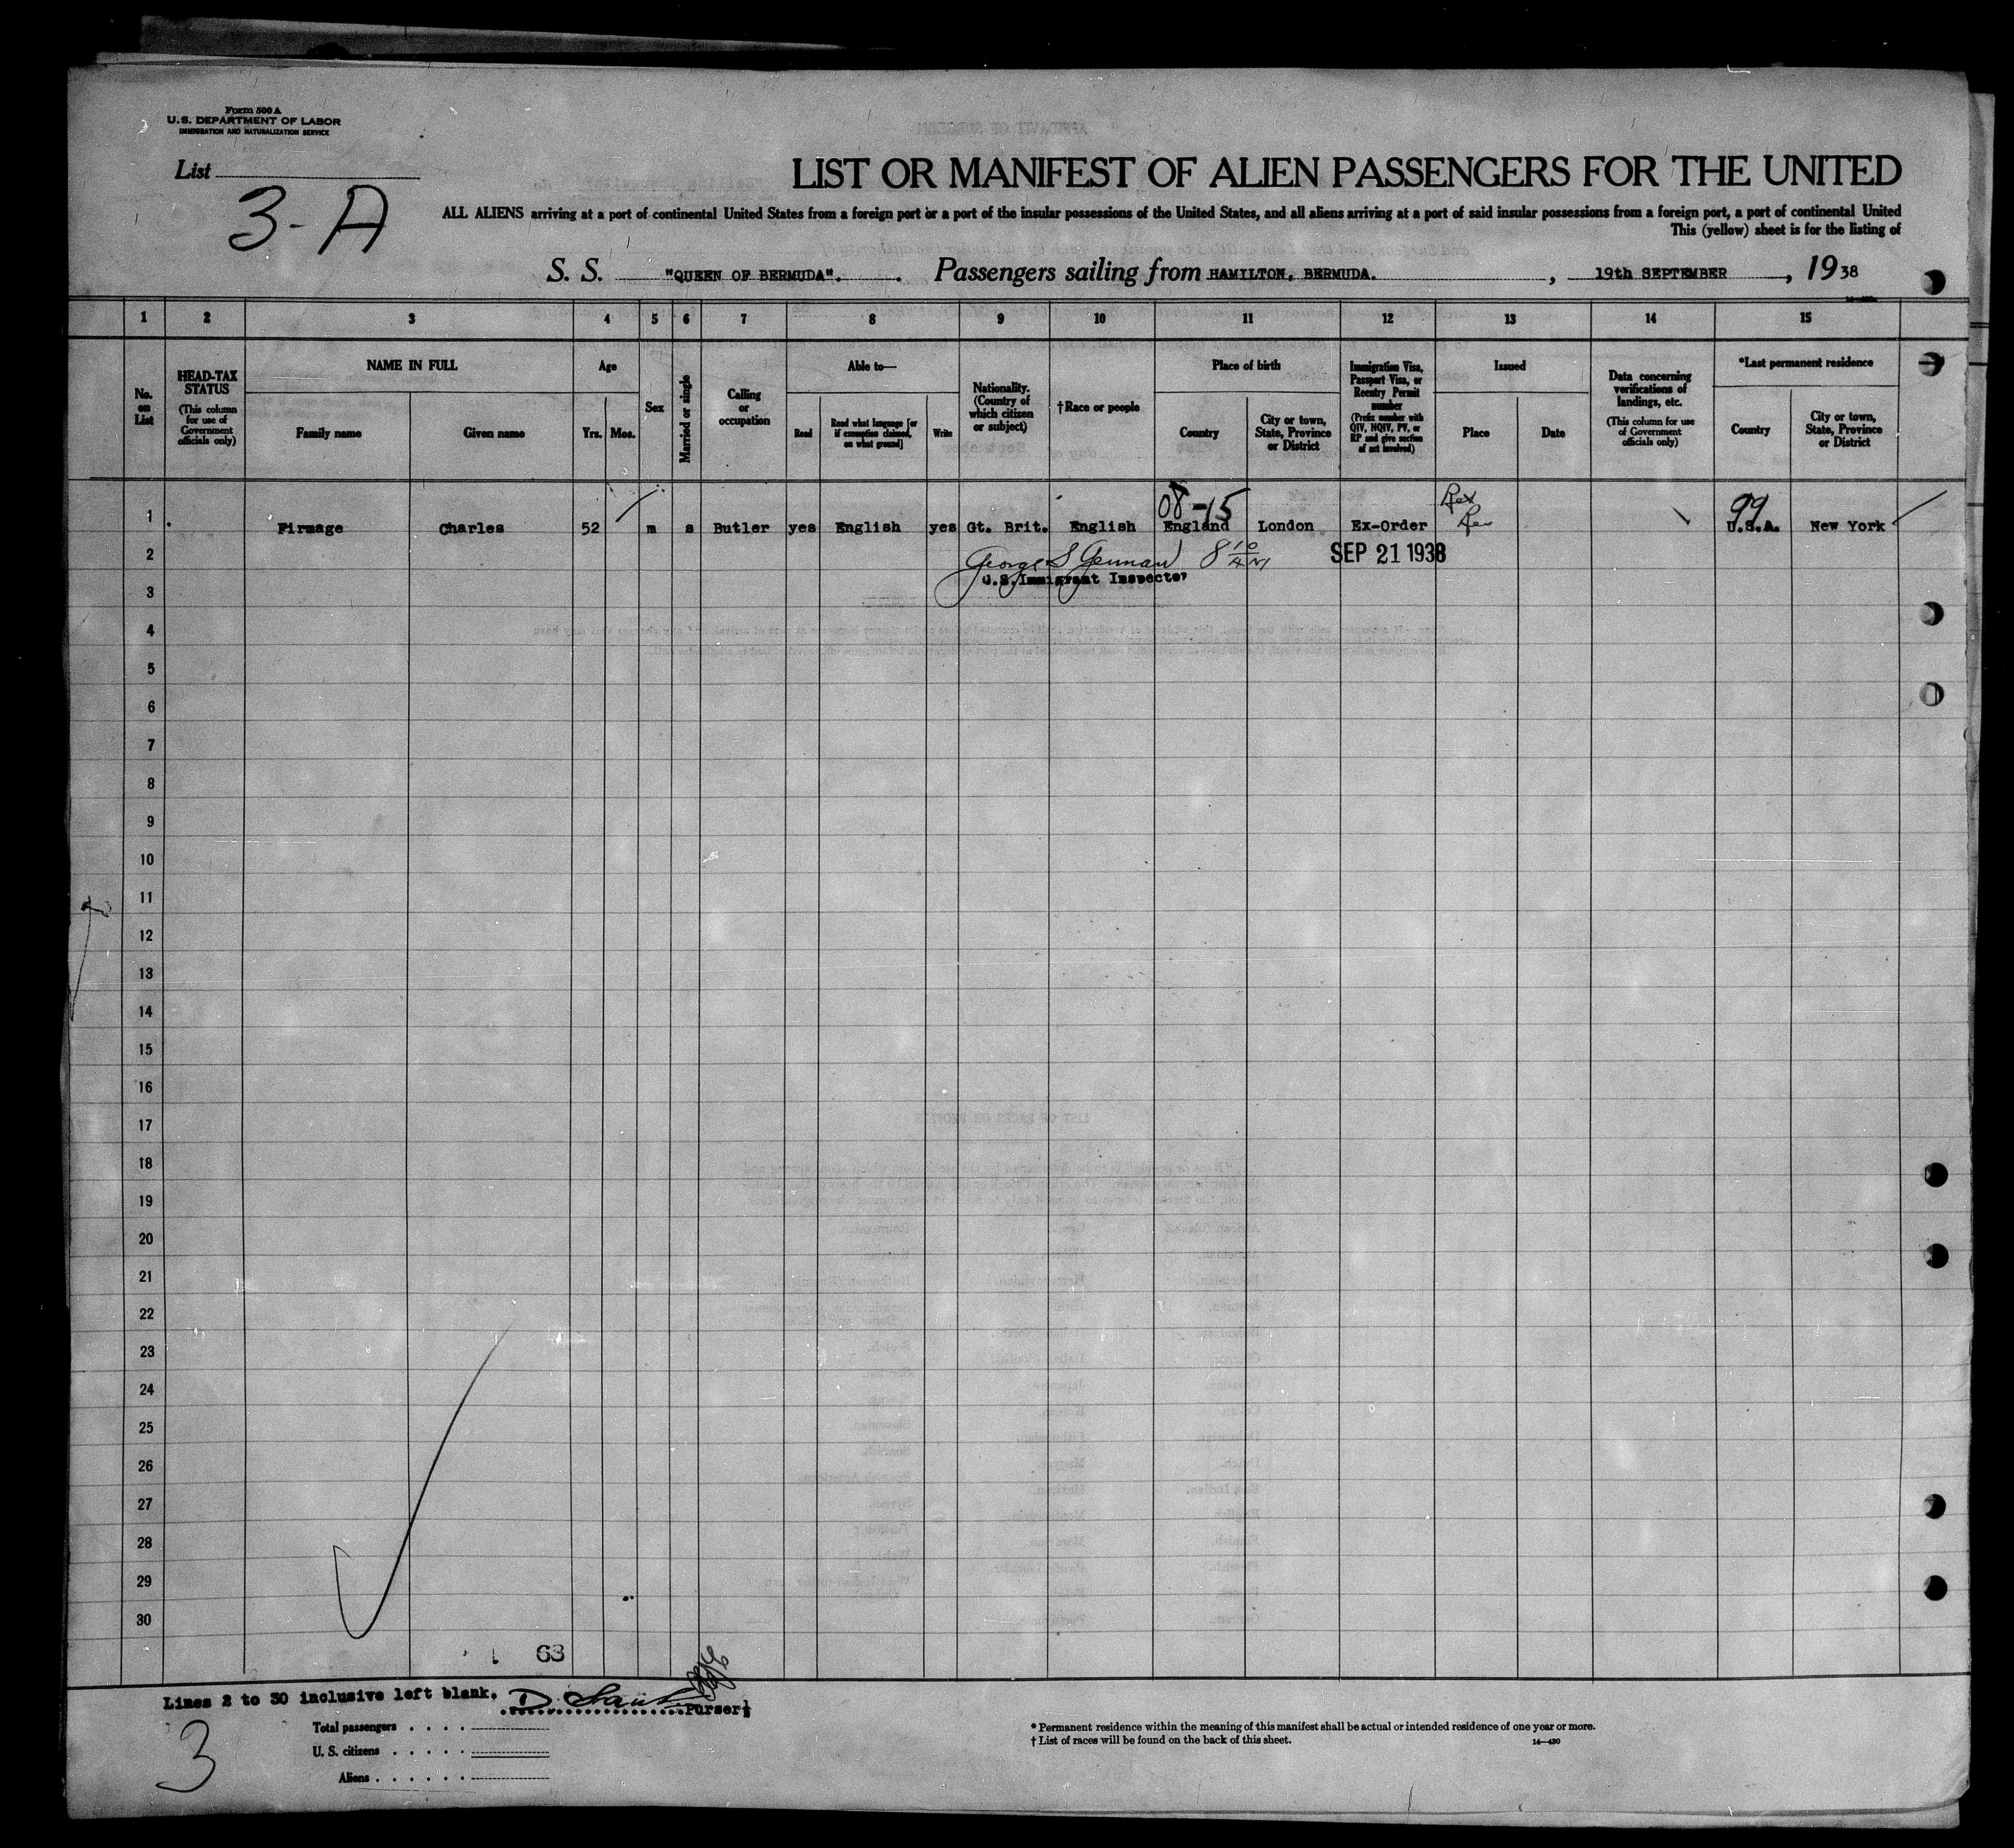 Form 500 A
U.S. DEPARTMENT OF LABOR
IMMIGRATION AND NATURALIZATION SERVICE
List
3-A
LIST OR MANIFEST OF ALIEN PASSENGERS FOR THE UNITED
ALL ALIENS arriving at a port of continental United States from a foreign port or a port of the insular possessions of the United States, and all aliens arriving at a port of said insular possessions from a foreign port, a port of continental United
This (yellow) sheet is for the listing of
S. S. "QUEEN OF BERMUDA". Passengers sailing from HAMILTON, BERMUDA. , 19th SEPTEMBER , 1938
1 2 3 4 5 6 7 8 9 10 11 12 13 14 15
No. on List
HEAD-TAX STATUS
(This column for use of Government officials only)
NAME IN FULL
Family name Given name
Age
Yrs. Mos.
Sex
Married or single
Calling or occupation
Able to—
Read
Read what language [or if exemption claimed, on what ground]
Write
Nationality. (Country of which citizen or subject)
†Race or people
Place of birth
Country
City or town, State, Province or District
Immigration Visa, Passport Visa, or Reentry Permit number
(Prefix number with QIV, NQIV, PV, or RP and give section of act involved)
Issued
Place Date
Data concerning verifications of landings, etc.
(This column for use of Government officials only)
*Last permanent residence
Country
City or town, State, Province or District
08-15
99
1 Firmage Charles 52 m s Butler yes English yes Gt. Brit. English England London Ex-Order U.S.A. New York
2 SEP 21 1938
U.S. Immigrant Inspector
3
4
5
6
7
8
9
10
11
12
13
14
15
16
17
18
19
20
21
22
23
24
25
26
27
28
29
30
63
Lines 2 to 30 inclusive left blank.
Purser
3
Total passengers
U. S. citizens
Aliens
* Permanent residence within the meaning of this manifest shall be actual or intended residence of one year or more.
† List of races will be found on the back of this sheet.
14—430